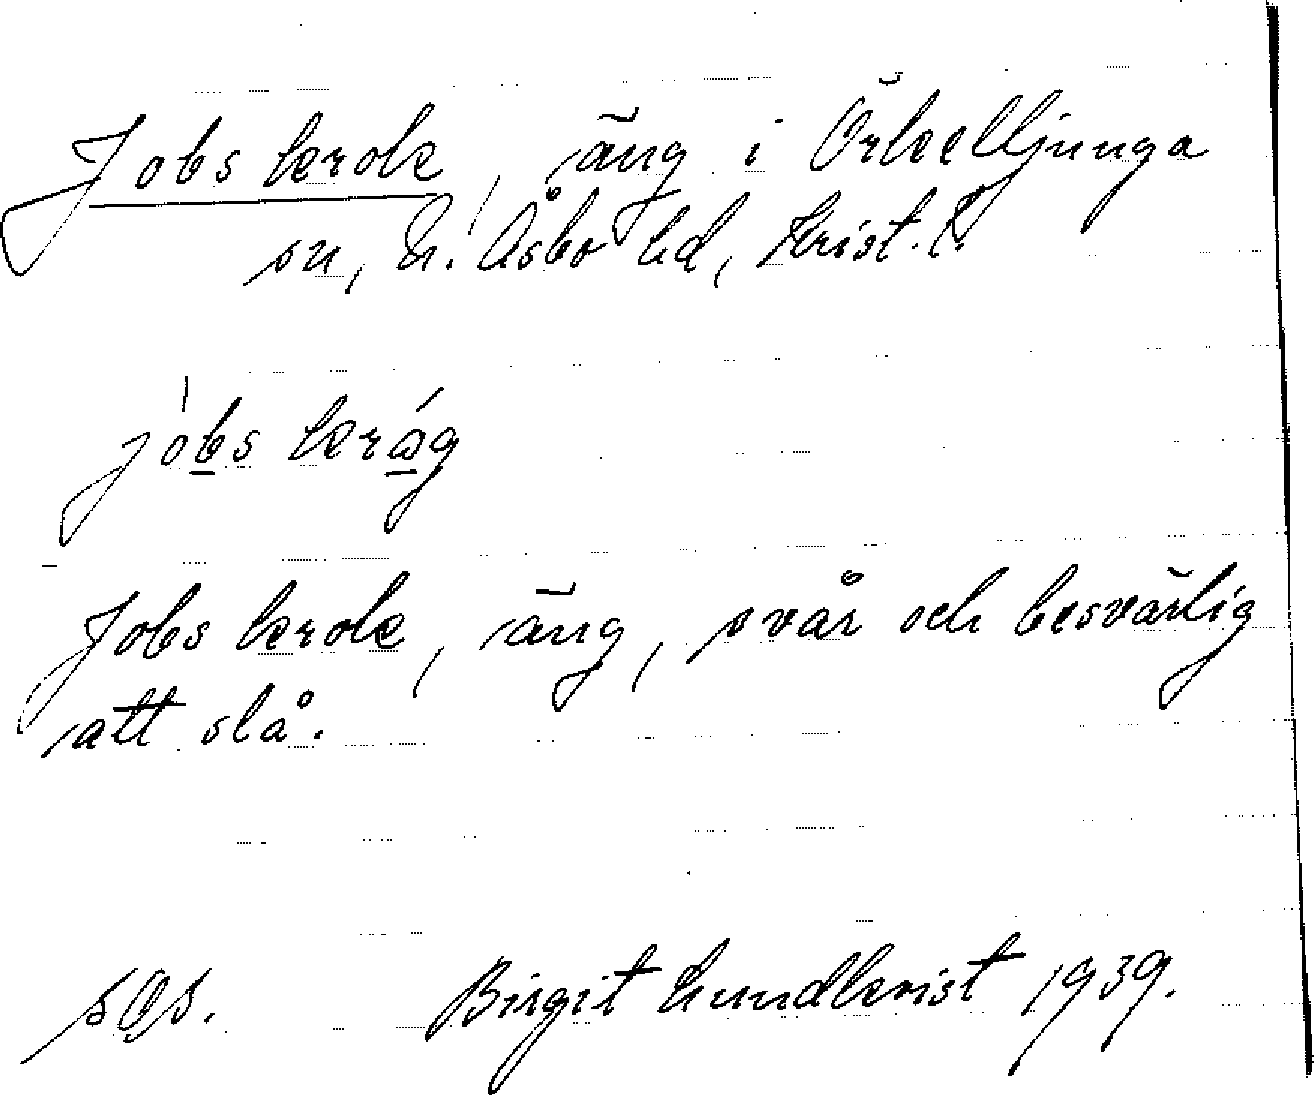 Jobs krok, äng i Örkelljunga
sn, N. Åsbo hd, Krist. l.
jobs kråg
Jobs krok, äng, svår och besvärlig
att slå.
Birgit Lundkvist 1939.